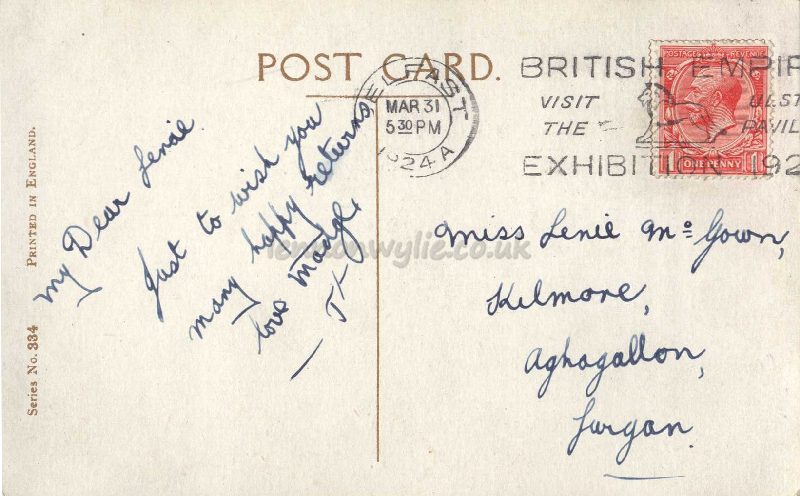 POST CARD.
BELFAST
MAR 31
5 30 PM
1924 A
BRITISH EMPIR
VISIT ULST
THE PAVIL
EXHIBITION 192
POSTAGE REVENUE
1 ONE PENNY 1
My Dear Lenie
Just to wish you
many happy returns,
love Madge,
Miss Lenie Mc Gown,
Kilmore,
Aghagallon,
Lurgan.
lennonwylie.co.uk
Series No. 334 PRINTED IN ENGLAND.